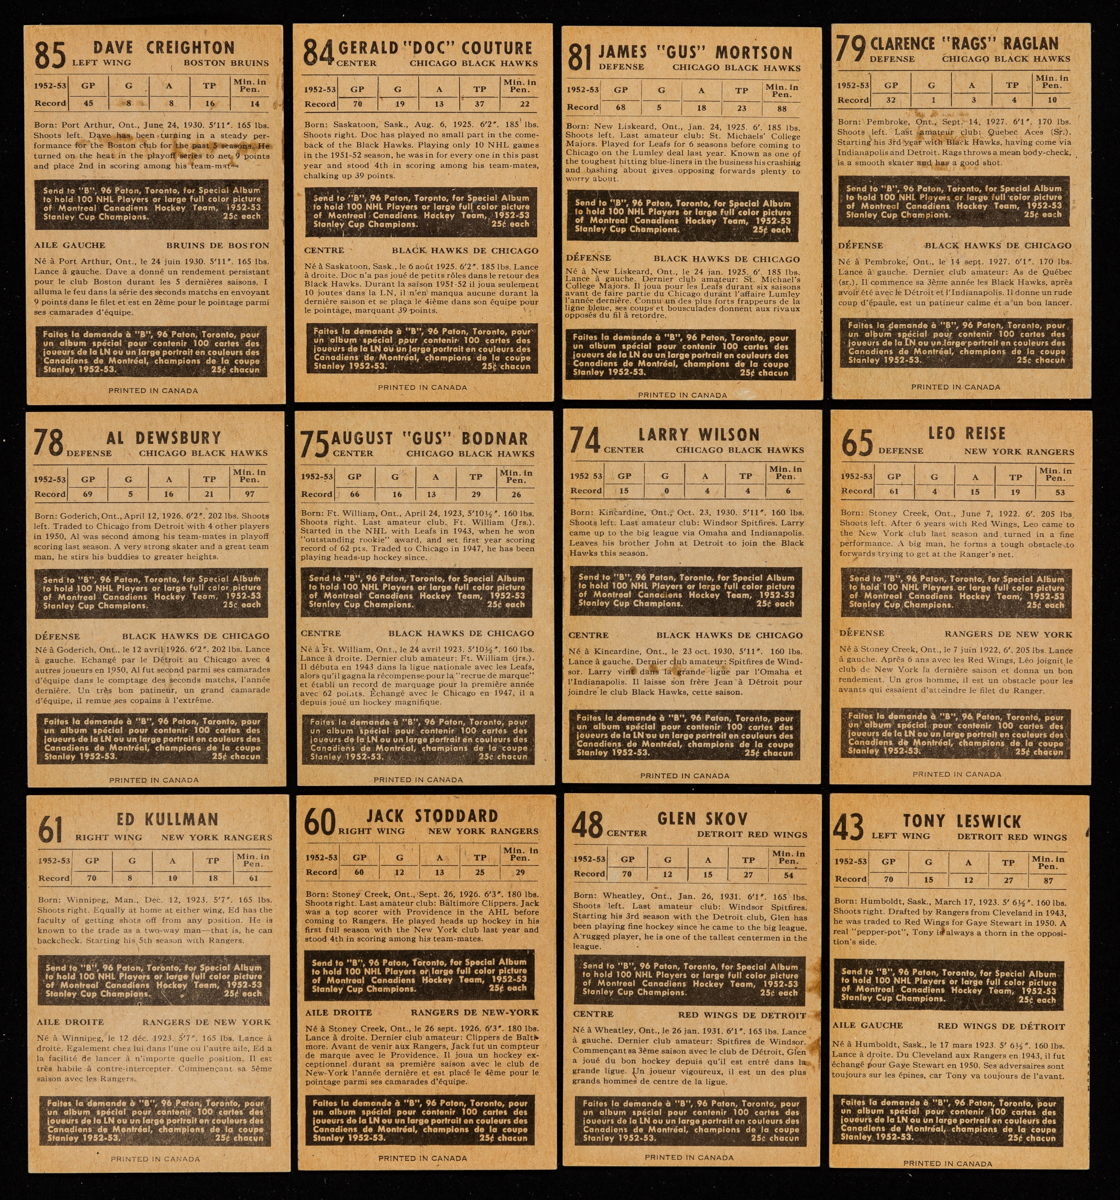 85 DAVE CREIGHTON
LEFT WING BOSTON BRUINS
1952-53 GP G A TP Min. in Pen.
Record 45 8 8 16 14
Born: Port Arthur, Ont., June 24, 1930. 5'11". 165 lbs.
Shoots left. Dave has been turning in a steady per-
formance for the Boston club for the past 5 seasons. He
turned on the heat in the playoff series to net 9 points
and place 2nd in scoring among his team-mates.
Send to "B", 96 Paton, Toronto, for Special Album
to hold 100 NHL Players or large full color picture
of Montreal Canadiens Hockey Team, 1952-53
Stanley Cup Champions. 25¢ each
AILE GAUCHE BRUINS DE BOSTON
Né à Port Arthur, Ont., le 24 juin 1930. 5'11". 165 lbs.
Lance à gauche. Dave a donné un rendement persistant
pour le club Boston durant les 5 dernières saisons. I
alluma le feu dans la série des seconds matchs en envoyant
9 points dans le filet et est en 2ème pour le pointage parmi
ses camarades d'équipe.
Faites la demande à "B", 96 Paton, Toronto, pour
un album spécial pour contenir 100 cartes des
joueurs de la LN ou un large portrait en couleurs des
Canadiens de Montréal, champions de la coupe
Stanley 1952-53. 25¢ chacun
PRINTED IN CANADA
84 GERALD "DOC" COUTURE
CENTER CHICAGO BLACK HAWKS
1952-53 GP G A TP Min. in Pen.
Record 70 19 13 37 22
Born: Saskatoon, Sask., Aug. 6, 1925. 6'2". 185 lbs.
Shoots right. Doc has played no small part in the come-
back of the Black Hawks. Playing only 10 NHL games
in the 1951-52 season, he was in for every one in this past
year and stood 4th in scoring among his team-mates,
chalking up 39 points.
Send to "B", 96 Paton, Toronto, for Special Album
to hold 100 NHL Players or large full color picture
of Montreal Canadiens Hockey Team, 1952-53
Stanley Cup Champions. 25¢ each
CENTRE BLACK HAWKS DE CHICAGO
Né à Saskatoon, Sask., le 6 août 1925. 6'2". 185 lbs. Lance
à droite. Doc n'a pas joué de petits rôles dans le retour des
Black Hawks. Durant la saison 1951-52 il joua seulement
10 joutes dans la LN, il n'en manqua aucune durant là
dernière saison et se plaça le 4ième dans son équipe pour
le pointage, marquant 39 points.
Faites la demande à "B", 96 Paton, Toronto, pour
un album spécial pour contenir 100 cartes des
joueurs de la LN ou un large portrait en couleurs des
Canadiens de Montréal, champions de la coupe
Stanley 1952-53. 25¢ chacun
PRINTED IN CANADA
81 JAMES "GUS" MORTSON
DEFENSE CHICAGO BLACK HAWKS
1952-53 GP G A TP Min. in Pen.
Record 68 5 18 23 88
Born: New Liskeard, Ont., Jan. 24, 1925. 6'. 185 lbs.
Shoots left. Last amateur club: St. Michaels' College
Majors. Played for Leafs for 6 seasons before coming to
Chicago on the Lumley deal last year. Known as one of
the toughest hitting blue-liners in the business his crashing
and bashing about gives opposing forwards plenty to
worry about.
Send to "B", 96 Paton, Toronto, for Special Album
to hold 100 NHL Players or large full color picture
of Montreal Canadiens Hockey Team, 1952-53
Stanley Cup Champions. 25¢ each
DÉFENSE BLACK HAWKS DE CHICAGO
Né à New Liskeard, Ont., le 24 jan. 1925. 6'. 185 lbs.
Lance à gauche. Dernier club amateur: St. Michael's
College Majors. Il joua pour les Leafs durant six saisons
avant de faire partie du Chicago durant l'affaire Lumley
l'année dernière. Connu un des plus forts frappeurs de la
ligne bleue, ses coups et bousculades donnent aux rivaux
opposés du fil à retordre.
Faites la demande à "B", 96 Paton, Toronto, pour
un album spécial pour contenir 100 cartes des
joueurs de la LN ou un large portrait en couleurs des
Canadiens de Montréal, champions de la coupe
Stanley 1952-53. 25¢ chacun
PRINTED IN CANADA
79 CLARENCE "RAGS" RAGLAN
DEFENSE CHICAGO BLACK HAWKS
1952-53 GP G A TP Min. in Pen.
Record 32 1 3 4 10
Born: Pembroke, Ont., Sept. 14, 1927. 6'1". 170 lbs.
Shoots left. Last amateur club: Quebec Aces (Sr.).
Starting his 3rd year with Black Hawks, having come via
Indianapolis and Detroit. Rags throws a mean body-check,
is a smooth skater and has a good shot.
Send to "B", 96 Paton, Toronto, for Special Album
to hold 100 NHL Players or large full color picture
of Montreal Canadiens Hockey Team, 1952-53
Stanley Cup Champions. 25¢ each
DÉFENSE BLACK HAWKS DE CHICAGO
Né à Pembroke, Ont., le 14 sept. 1927. 6'1". 170 lbs.
Lance à gauche. Dernier club amateur: As de Québec
(sr.). Il commence sa 3ème année les Black Hawks, après
avoir été avec le Détroit et l'Indianapolis. Il donne un rude
coup d'épaule, est un patineur calme et a un bon lancer.
Faites la demande à "B", 96 Paton, Toronto, pour
un album spécial pour contenir 100 cartes des
joueurs de la LN ou un large portrait en couleurs des
Canadiens de Montréal, champions de la coupe
Stanley 1952-53. 25¢ chacun
PRINTED IN CANADA
78 AL DEWSBURY
DEFENSE CHICAGO BLACK HAWKS
1952-53 GP G A TP Min. in Pen.
Record 69 5 16 21 97
Born: Goderich, Ont., April 12, 1926. 6'2". 202 lbs. Shoots
left. Traded to Chicago from Detroit with 4 other players
in 1950, Al was second among his team-mates in playoff
scoring last season. A very strong skater and a great team
man, he stirs his buddies to greater heights.
Send to "B", 96 Paton, Toronto, for Special Album
to hold 100 NHL Players or large full color picture
of Montreal Canadiens Hockey Team, 1952-53
Stanley Cup Champions. 25¢ each
DÉFENSE BLACK HAWKS DE CHICAGO
Né à Goderich, Ont., le 12 avril 1926. 6'2". 202 lbs. Lance
à gauche. Echangé par le Détroit au Chicago avec 4
autres joueurs en 1950, Al fut second parmi ses camarades
d'équipe dans le comptage des seconds matchs, l'année
dernière. Un très bon patineur, un grand camarade
d'équipe, il remue ses copains à l'extrême.
Faites la demande à "B", 96 Paton, Toronto, pour
un album spécial pour contenir 100 cartes des
joueurs de la LN ou un large portrait en couleurs des
Canadiens de Montréal, champions de la coupe
Stanley 1952-53. 25¢ chacun
PRINTED IN CANADA
75 AUGUST "GUS" BODNAR
CENTER CHICAGO BLACK HAWKS
1952-53 GP G A TP Min. in Pen.
Record 66 16 13 29 26
Born: Ft. William, Ont., April 24, 1923, 5'10½". 160 lbs.
Shoots right. Last amateur club, Ft. William (Jrs.).
Started in the NHL with Leafs in 1943, when he won
"outstanding rookie" award, and set first year scoring
record of 62 pts. Traded to Chicago in 1947, he has been
playing heads-up hockey since.
Send to "B", 96 Paton, Toronto, for Special Album
to hold 100 NHL Players or large full color picture
of Montreal Canadiens Hockey Team, 1952-53
Stanley Cup Champions. 25¢ each
CENTRE BLACK HAWKS DE CHICAGO
Né à Ft. William, Ont., le 24 avril 1923. 5'10½". 160 lbs.
Lance à droite. Dernier club amateur: Ft. William (jrs.).
Il débuta en 1943 dans la ligue nationale avec les Leafs,
alors qu'il gagna la récompense pour la "recrue de marque"
et établi un record de marquage pour la première année
avec 62 points. Échangé avec le Chicago en 1947, il a
depuis joué un hockey magnifique.
Faites la demande à "B", 96 Paton, Toronto, pour
un album spécial pour contenir 100 cartes des
joueurs de la LN ou un large portrait en couleurs des
Canadiens de Montréal, champions de la coupe
Stanley 1952-53. 25¢ chacun
PRINTED IN CANADA
74 LARRY WILSON
CENTER CHICAGO BLACK HAWKS
1952 53 GP G A TP Min. in Pen.
Record 15 0 4 4 6
Born: Kincardine, Ont., Oct. 23, 1930. 5'11". 160 lbs.
Shoots left: Last amateur club: Windsor Spitfires. Larry
came up to the big league via Omaha and Indianapolis.
Leaves his brother John at Detroit to join the Black
Hawks this season.
Send to "B", 96 Paton, Toronto, for Special Album
to hold 100 NHL Players or large full color picture
of Montreal Canadiens Hockey Team, 1952-53
Stanley Cup Champions. 25¢ each
CENTRE BLACK HAWKS DE CHICAGO
Né à Kincardine, Ont., le 23 oct. 1930. 5'11". 160 lbs.
Lance à gauche. Dernier club amateur: Spitfires de Wind-
sor. Larry vint dans la grande ligue par l'Omaha et
l'Indianapolis. Il laisse son frère Jean à Détroit pour
joindre le club Black Hawks, cette saison.
Faites la demande à "B", 96 Paton, Toronto, pour
un album spécial pour contenir 100 cartes des
joueurs de la LN ou un large portrait en couleurs des
Canadiens de Montréal, champions de la coupe
Stanley 1952-53. 25¢ chacun
PRINTED IN CANADA
65 LEO REISE
DEFENSE NEW YORK RANGERS
1952-53 GP G A TP Min. in Pen.
Record 61 4 15 19 53
Born: Stoney Creek, Ont., June 7, 1922. 6'. 205 lbs.
Shoots left. After 6 years with Red Wings, Leo came to
the New York club last season and turned in a fine
performance. A big man, he forms a tough obstacle to
forwards trying to get at the Ranger's net.
Send to "B", 96 Paton, Toronto, for Special Album
to hold 100 NHL Players or large full color picture
of Montreal Canadiens Hockey Team, 1952-53
Stanley Cup Champions. 25¢ each
DÉFENSE RANGERS DE NEW YORK
Né à Stoney Creek, Ont., le 7 juin 1922, 6'. 205 lbs. Lance
à gauche. Après 6 ans avec les Red Wings, Léo joignit le
club de New York la dernière saison et donna un bon
rendement. Un gros homme, il est un obstacle pour les
avants qui essaient d'atteindre le filet du Ranger.
Faites la demande à "B", 96 Paton, Toronto, pour
un album spécial pour contenir 100 cartes des
joueurs de la LN ou un large portrait en couleurs des
Canadiens de Montréal, champions de la coupe
Stanley 1952-53. 25¢ chacun
PRINTED IN CANADA
61 ED KULLMAN
RIGHT WING NEW YORK RANGERS
1952-53 GP G A TP Min. in Pen.
Record 70 8 10 18 61
Born: Winnipeg, Man., Dec. 12, 1923. 5'7". 165 lbs.
Shoots right. Equally at home at either wing, Ed has the
faculty of getting shots off from any position. He is
known to the trade as a two-way man—that is, he can
backcheck. Starting his 5th season with Rangers.
Send to "B", 96 Paton, Toronto, for Special Album
to hold 100 NHL Players or large full color picture
of Montreal Canadiens Hockey Team, 1952-53
Stanley Cup Champions. 25¢ each
AILE DROITE RANGERS DE NEW YORK
Né à Winnipeg, le 12 déc. 1923. 5'7". 165 lbs. Lance à
droite. Egalement chez lui dans l'une ou l'autre aile, Ed a
la facilité de lancer à n'importe quelle position. Il est
très habile à contre-intercepter. Commençant sa 5ème
saison avec les Rangers.
Faites la demande à "B", 96 Paton, Toronto, pour
un album spécial pour contenir 100 cartes des
joueurs de la LN ou un large portrait en couleurs des
Canadiens de Montréal, champions de la coupe
Stanley 1952-53. 25¢ chacun
PRINTED IN CANADA
60 JACK STODDARD
RIGHT WING NEW YORK RANGERS
1952-53 GP G A TP Min. in Pen.
Record 60 12 13 25 29
Born: Stoney Creek, Ont., Sept. 26, 1926. 6'3". 180 lbs.
Shoots right. Last amateur club: Baltimore Clippers. Jack
was a top scorer with Providence in the AHL before
coming to Rangers. He played heads up hockey in his
first full season with the New York club last year and
stood 4th in scoring among his team-mates.
Send to "B", 96 Paton, Toronto, for Special Album
to hold 100 NHL Players or large full color picture
of Montreal Canadiens Hockey Team, 1952-53
Stanley Cup Champions. 25¢ each
AILE DROITE RANGERS DE NEW-YORK
Né à Stoney Creek, Ont., le 26 sept. 1926. 6'3". 180 lbs.
Lance à droite. Dernier club amateur: Clippers de Balti-
more. Avant de venir aux Rangers, Jack fut un compteur
de marque avec le Providence. Il joua un hockey ex-
ceptionnel durant sa première saison avec le club de
New-York l'année dernière et est placé le 4ème pour le
pointage parmi ses camarades d'équipe.
Faites la demande à "B", 96 Paton, Toronto, pour
un album spécial pour contenir 100 cartes des
joueurs de la LN ou un large portrait en couleurs des
Canadiens de Montréal, champions de la coupe
Stanley 1952-53. 25¢ chacun
PRINTED IN CANADA
48 GLEN SKOV
CENTER DETROIT RED WINGS
1952-53 GP G A TP Min. in Pen.
Record 70 12 15 27 54
Born: Wheatley, Ont., Jan. 26, 1931. 6'1". 165 lbs.
Shoots left. Last amateur club: Windsor Spitfires.
Starting his 3rd season with the Detroit club, Glen has
been playing fine hockey since he came to the big league.
A rugged player, he is one of the tallest centermen in the
league.
Send to "B", 96 Paton, Toronto, for Special Album
to hold 100 NHL Players or large full color picture
of Montreal Canadiens Hockey Team, 1952-53
Stanley Cup Champions. 25¢ each
CENTRE RED WINGS DE DETROIT
Né à Wheatley, Ont., le 26 jan. 1931. 6'1". 165 lbs. Lance
à gauche. Dernier club amateur: Spitfires de Windsor.
Commençant sa 3ème saison avec le club de Détroit, Glen
a joué du bon hockey depuis qu'il est entré dans la
grande ligue. Un joueur vigoureux, il est un des plus
grands hommes de centre de la ligue.
Faites la demande à "B", 96 Paton, Toronto, pour
un album spécial pour contenir 100 cartes des
joueurs de la LN ou un large portrait en couleurs des
Canadiens de Montréal, champions de la coupe
Stanley 1952-53. 25¢ chacun
PRINTED IN CANADA
43 TONY LESWICK
LEFT WING DETROIT RED WINGS
1952-53 GP G A TP Min. in Pen.
Record 70 15 12 27 87
Born: Humboldt, Sask., March 17, 1923. 5' 6½". 160 lbs.
Shoots right. Drafted by Rangers from Cleveland in 1943,
he was traded to Red Wings for Gaye Stewart in 1950. A
real "pepper-pot", Tony is always a thorn in the opposi-
tion's side.
Send to "B", 96 Paton, Toronto, for Special Album
to hold 100 NHL Players or large full color picture
of Montreal Canadiens Hockey Team, 1952-53
Stanley Cup Champions. 25¢ each
AILE GAUCHE RED WINGS DE DÉTROIT
Né à Humboldt, Sask., le 17 mars 1923. 5' 6½". 160 lbs.
Lance à droite. Du Cleveland aux Rangers en 1943, il fut
échangé pour Gaye Stewart en 1950. Ses adversaires sont
toujours sur les épines, car Tony va toujours de l'avant.
Faites la demande à "B", 96 Paton, Toronto, pour
un album spécial pour contenir 100 cartes des
joueurs de la LN ou un large portrait en couleurs des
Canadiens de Montréal, champions de la coupe
Stanley 1952-53. 25¢ chacun
PRINTED IN CANADA